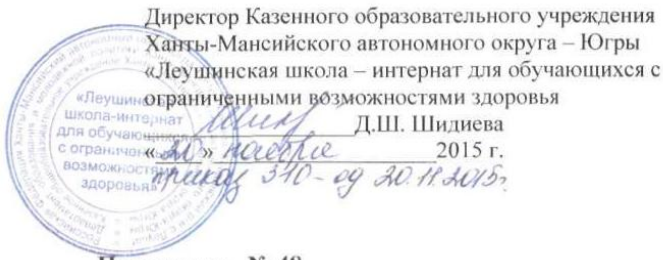 Директор Казенного образовательного учреждения
Ханты-Мансийского автономного округа – Югры
«Леушинская школа – интернат для обучающихся с
ограниченными возможностями здоровья
Д.Ш. Шидиева
«20» ноября 2015 г.
приказ 310-од 20.11.2015г
«Леушинская
школа-интернат
для обучающихся
с ограниченными
возможностями
здоровья»
№ 48